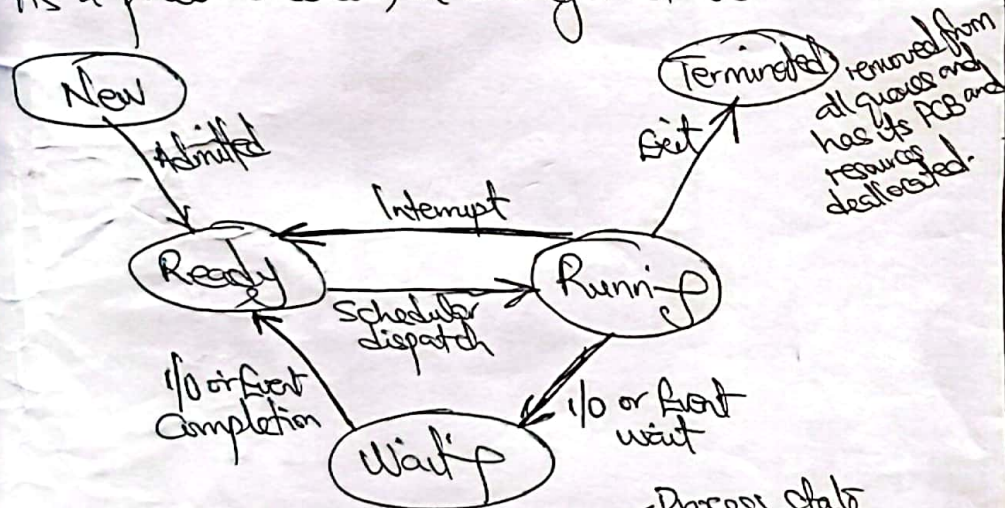 New
Terminated
removed from
all queues and
has its PCB and
resources
deallocated.
Admitted
Exit
Interrupt
Ready
Running
Schedular
dispatch
I/O or Event
Completion
I/O or Event
wait
Waiting
-Process state